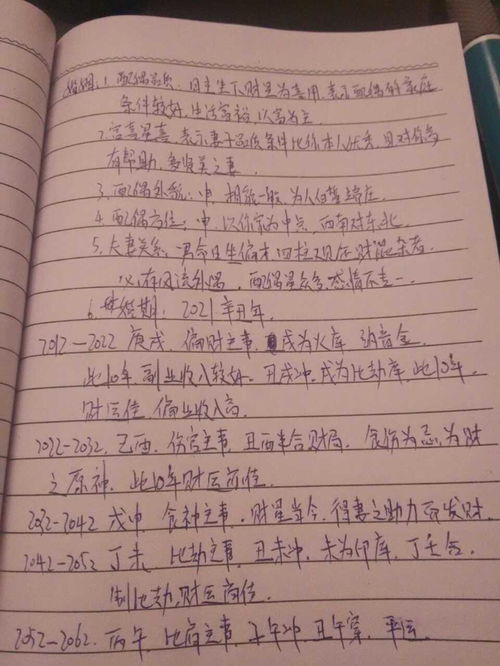 婚姻:1.配偶素质:日主坐下财星为喜用,表示配偶的家庭
条件较好,生活富裕,以富为主
2.宫喜星喜,表示妻子各项条件比你本人优秀,且对你多
有帮助,妻贤美之妻.
3.配偶外貌:申,相貌一般,为人白皙
4.配偶方位:申,以你家为中点,西南对东北
5.夫妻关系,男命日坐偏才,四柱又见正财混杂者
必有风流外遇,配偶星众多,感情不专一.
6.婚期:2021辛丑年.
2012—2022 庚戌,偏财主事,戌为火库 纳音金
此10年副业收入较好,丑戌冲,戌为比劫库,此10年
财运佳,偏业收入高.
2022-2032,己酉,伤官主事,丑酉半合财局,食伤为忌,为财
之原神,此10年财运尚佳.
2032-2042 戊申 食神主事,财星当令,得妻之助力而发财.
2042-2052 丁未,比劫主事,丑未冲,未为印库,丁壬合,
制比劫,财运尚佳.
2052-2062,丙午,比肩主事,子午冲 丑午穿,平运.